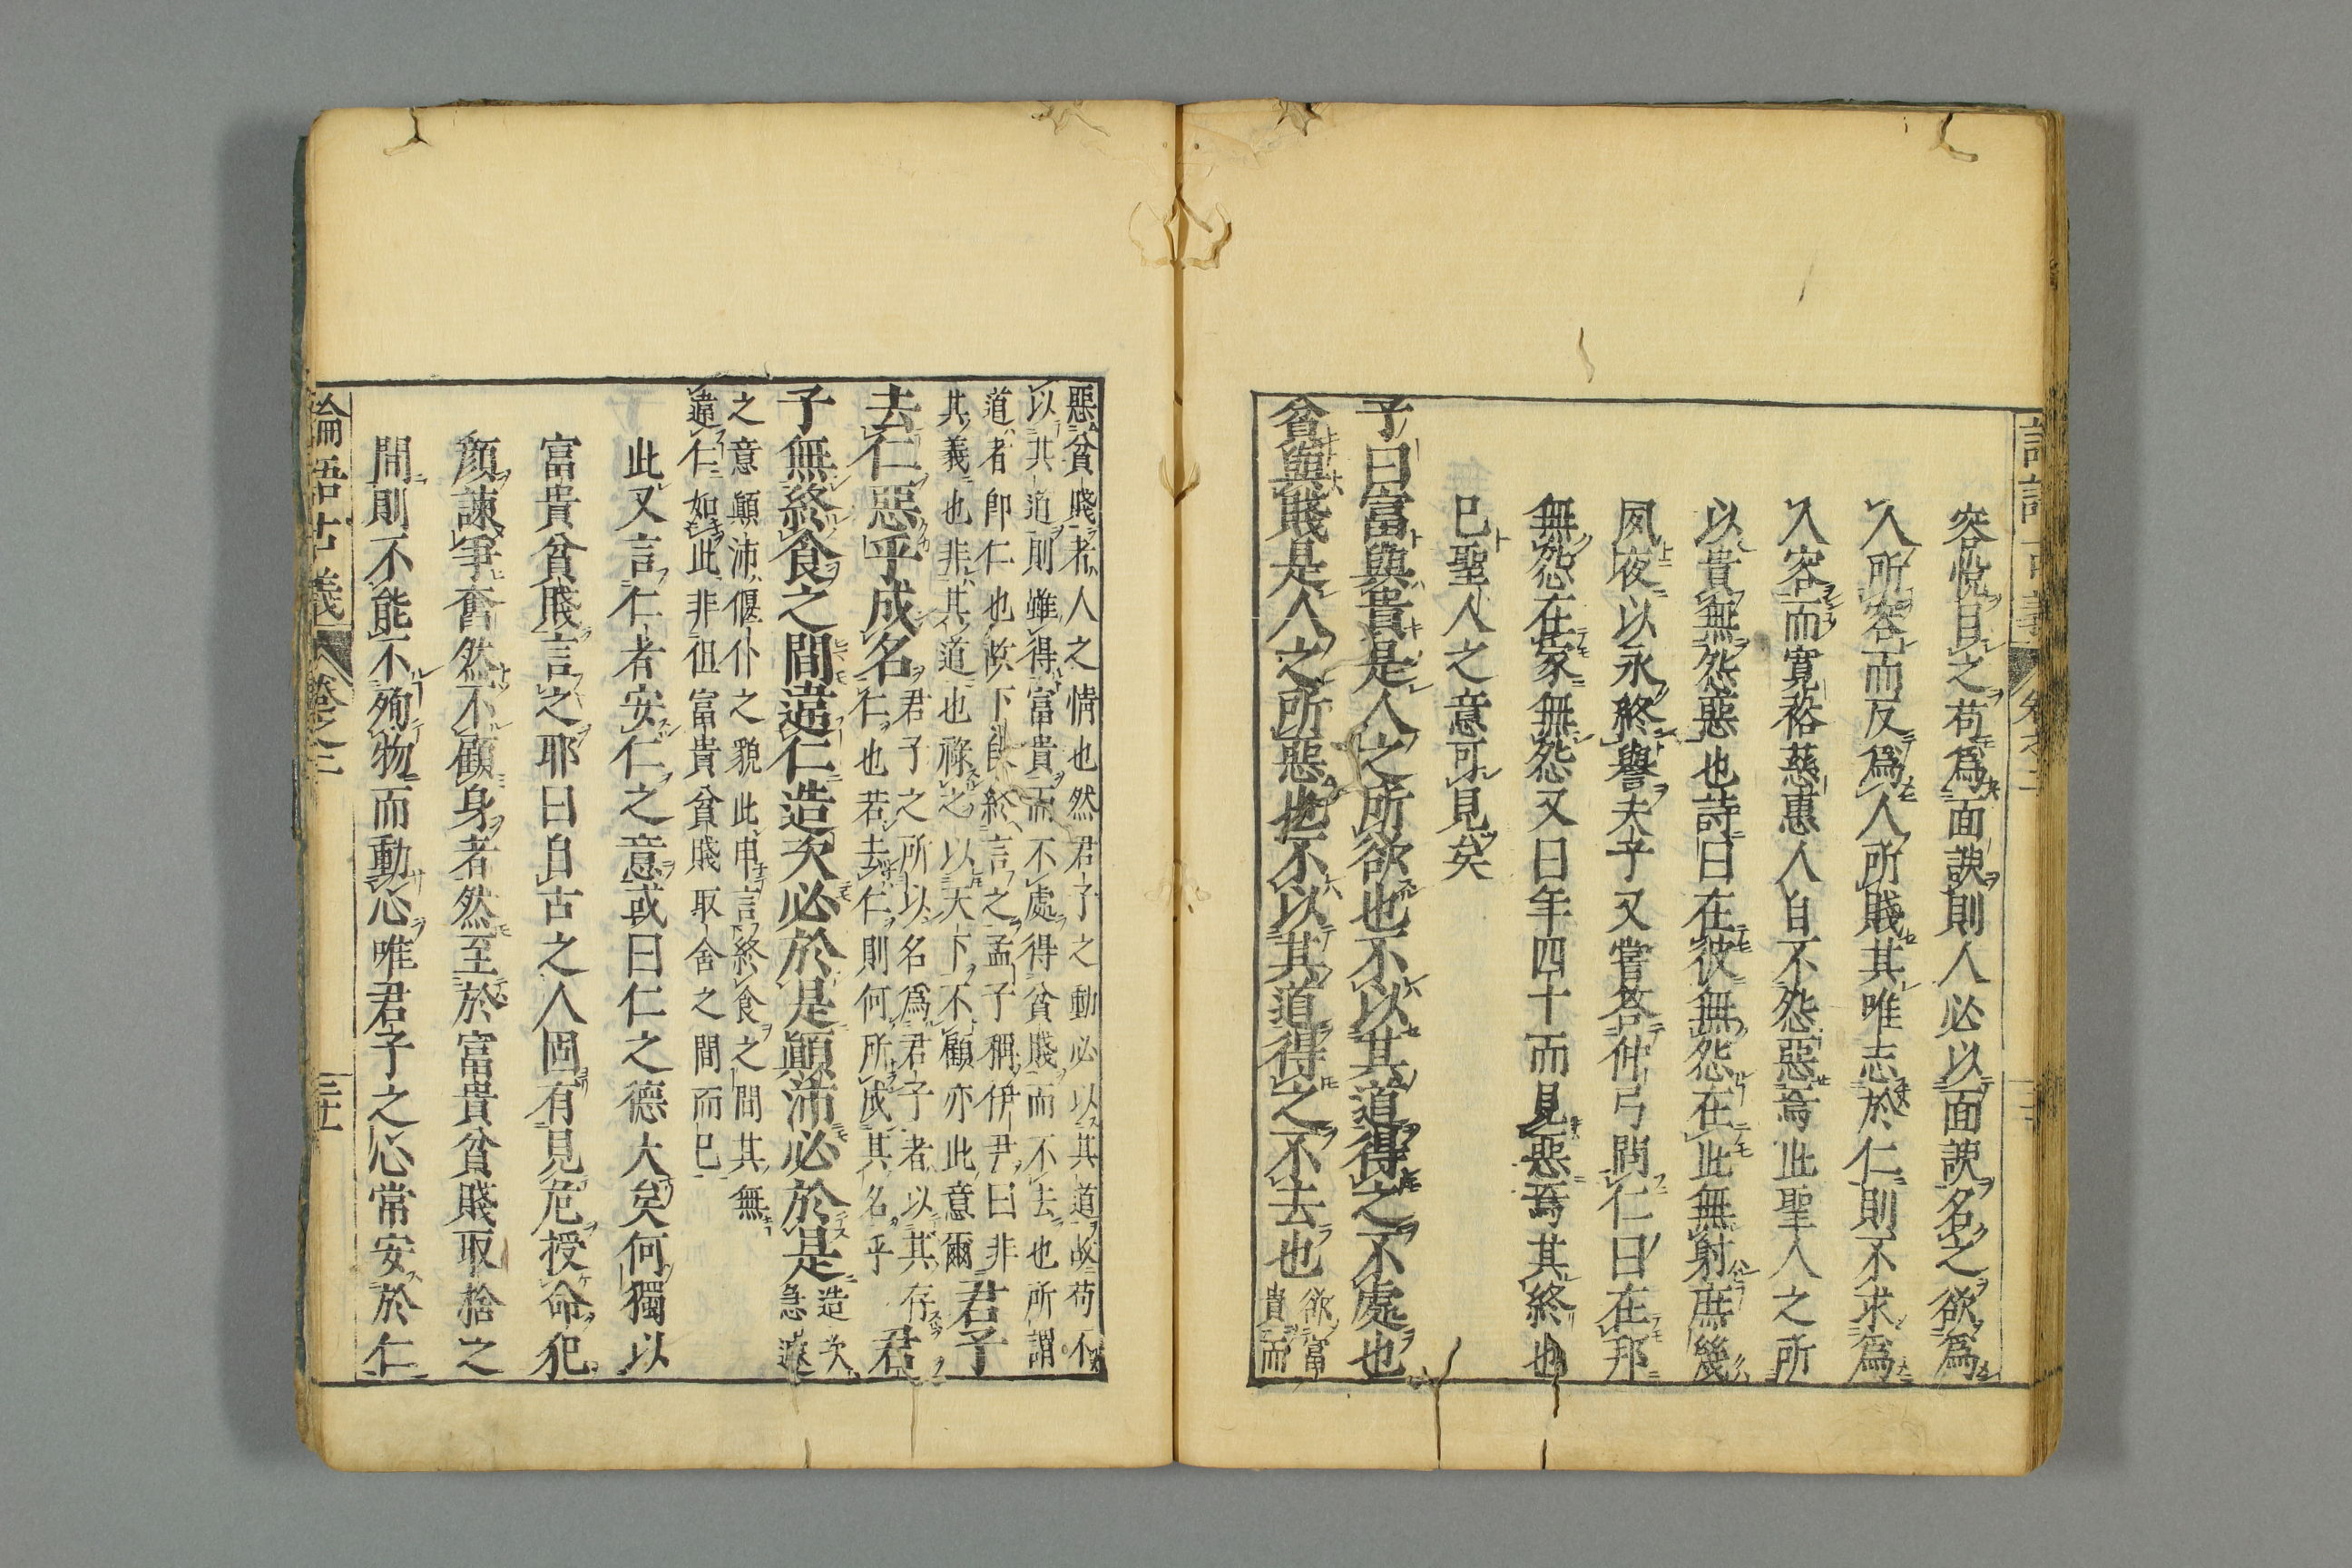 容悅目之苟爲面諛則人必以面諛名之欲爲
人所容而反爲人所賤其唯志於仁則不求爲
人容而寬裕慈惠人自不怨惡焉此聖人之所
以貴無怨惡也詩曰在彼無怨在此無射庶幾
夙夜以永終譽夫子又嘗答仲弓問仁曰在邦
無怨在家無怨又曰年四十而見惡焉其終也
已聖人之意可見矣
子曰富與貴是人之所欲也不以其道得之不處也
貧與賤是人之所惡也不以其道得之不去也欲富
貴而
惡貧賤者人之情也然君子之動必以其道故苟不
以其道則雖得富貴而不處得貧賤而不去也所謂
道者卽仁也故下段終言之孟子稱伊尹曰非
其義也非其道也祿之以天下不顧亦此意爾
君子
去仁惡乎成名君子之所以名爲君子者以其存
仁也若去仁則何所成其名乎
君
子無終食之間違仁造次必於是顚沛必於是造次
急遽
之意顚沛偃仆之貌此申言終食之間其無
違仁如此非徂富貴貧賤取舍之間而已
此又言仁者安仁之意或曰仁之德大矣何獨以
富貴貧賤言之耶曰自古之人固有見危授命犯
顏諫爭奮然不顧身者然至於富貴貧賤取捨之
間則不能不殉物而動心唯君子之心常安於仁
論語古義 卷之二